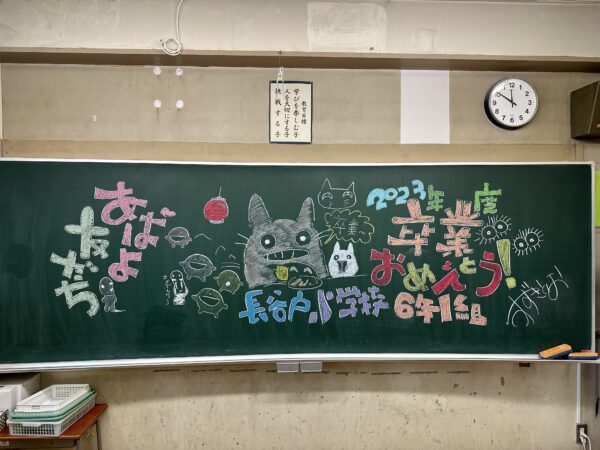 教育目標
学びを楽しむ子
人を大切にする子
挑戦する子
あばよ
友だち
卒業
長谷戸小学校
2023年度
卒業
おめでとう!
6年1組